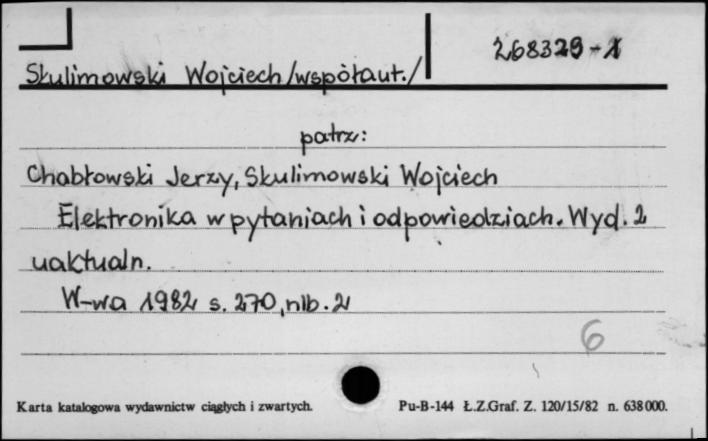 268329-1
Skulimowski Wojciech/współaut./
patrz:
Chabłowski Jerzy, Skulimowski Wojciech
Elektronika w pytaniach i odpowiedziach. Wyd. 2
uaktualn.
W-wa 1982 s. 270, nlb. 2
6
Karta katalogowa wydawnictw ciągłych i zwartych.
Pu-B-144 Ł.Z.Graf. Z. 120/15/82 n. 638000.